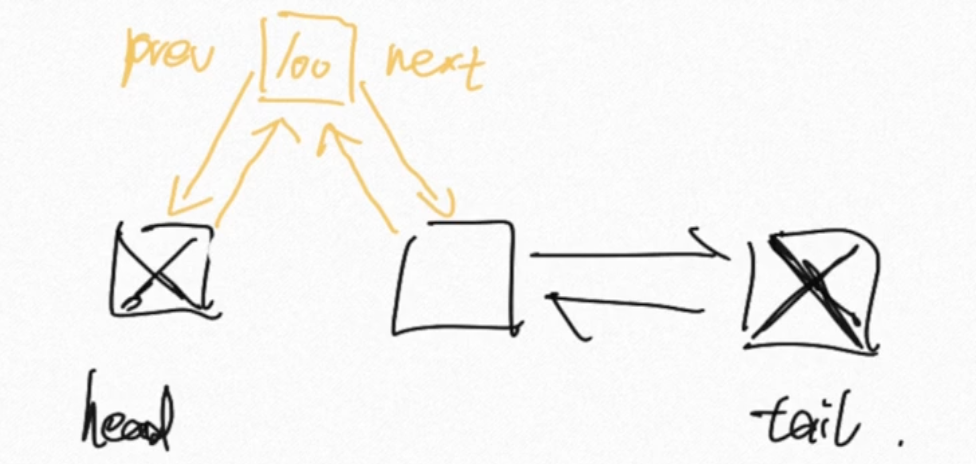 prev 100 next
head tail.